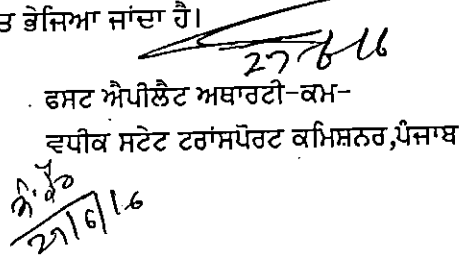 ਤ ਭੇਜਿਆ ਜਾਂਦਾ ਹੈ।
27/6/16
ਫਸਟ ਐਪੀਲੈਟ ਅਥਾਰਟੀ-ਕਮ-
ਵਧੀਕ ਸਟੇਟ ਟਰਾਂਸਪੋਰਟ ਕਮਿਸ਼ਨਰ,ਪੰਜਾਬ
27/6/16